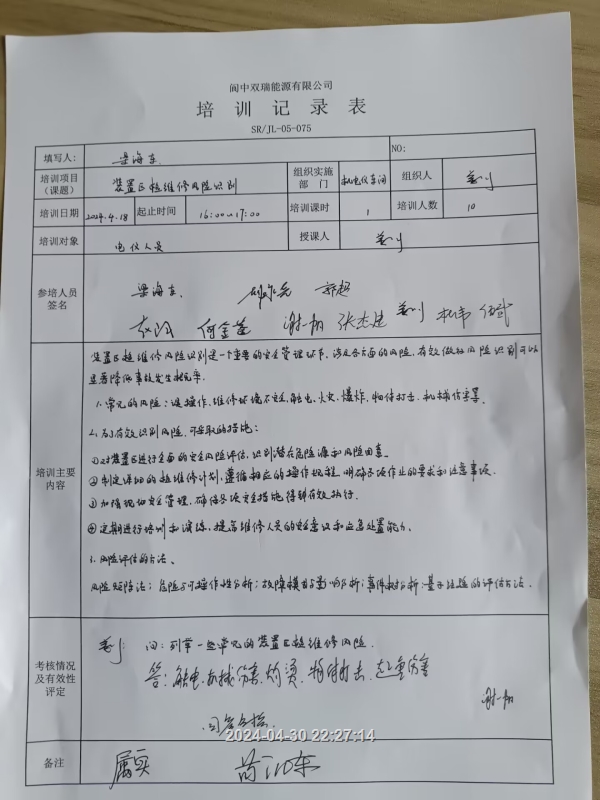 阆中双瑞能源有限公司
培训记录表
SR/JL-05-075
填写人： 梁海东 NO:
培训项目（课题） 装置区检维修风险识别 组织实施部门 机电仪车间 组织人
培训日期 2024.4.18 起止时间 16:00~17:00 培训课时 1 培训人数 10
培训对象 电仪人员 授课人
参培人员签名
梁海东. 郭超
何金莲 谢翔 张杰 杜伟 伍武
培训主要内容
装置区检维修风险识别是一个重要的安全管理环节，涉及各方面的风险，有效做好风险识别可以
显著降低事故发生概率.
1.常见的风险：误操作、维修环境不安全、触电、火灾、爆炸、物体打击、机械伤害等
2.为有效识别风险，可采取的措施：
①对装置区进行全面的安全风险评估，识别潜在危险源和风险因素.
②制定详细的检维修计划，遵循相应的操作规程，明确各项作业的要求和注意事项.
③加强现场安全管理，确保各项安全措施得到有效执行.
④定期进行培训和演练，提高维修人员的安全意识和应急处置能力.
3.风险评估的方法、
风险矩阵法；危险与可操作性分析；故障模式与影响分析；事件树分析；基于经验的评估方法.
考核情况及有效性评定
问：列举一些常见的装置区检维修风险.
答：触电.机械伤害.灼烫.物体打击.起重伤害
谢翔
回答合格.
2024-04-30 22:27:14
备注 属实